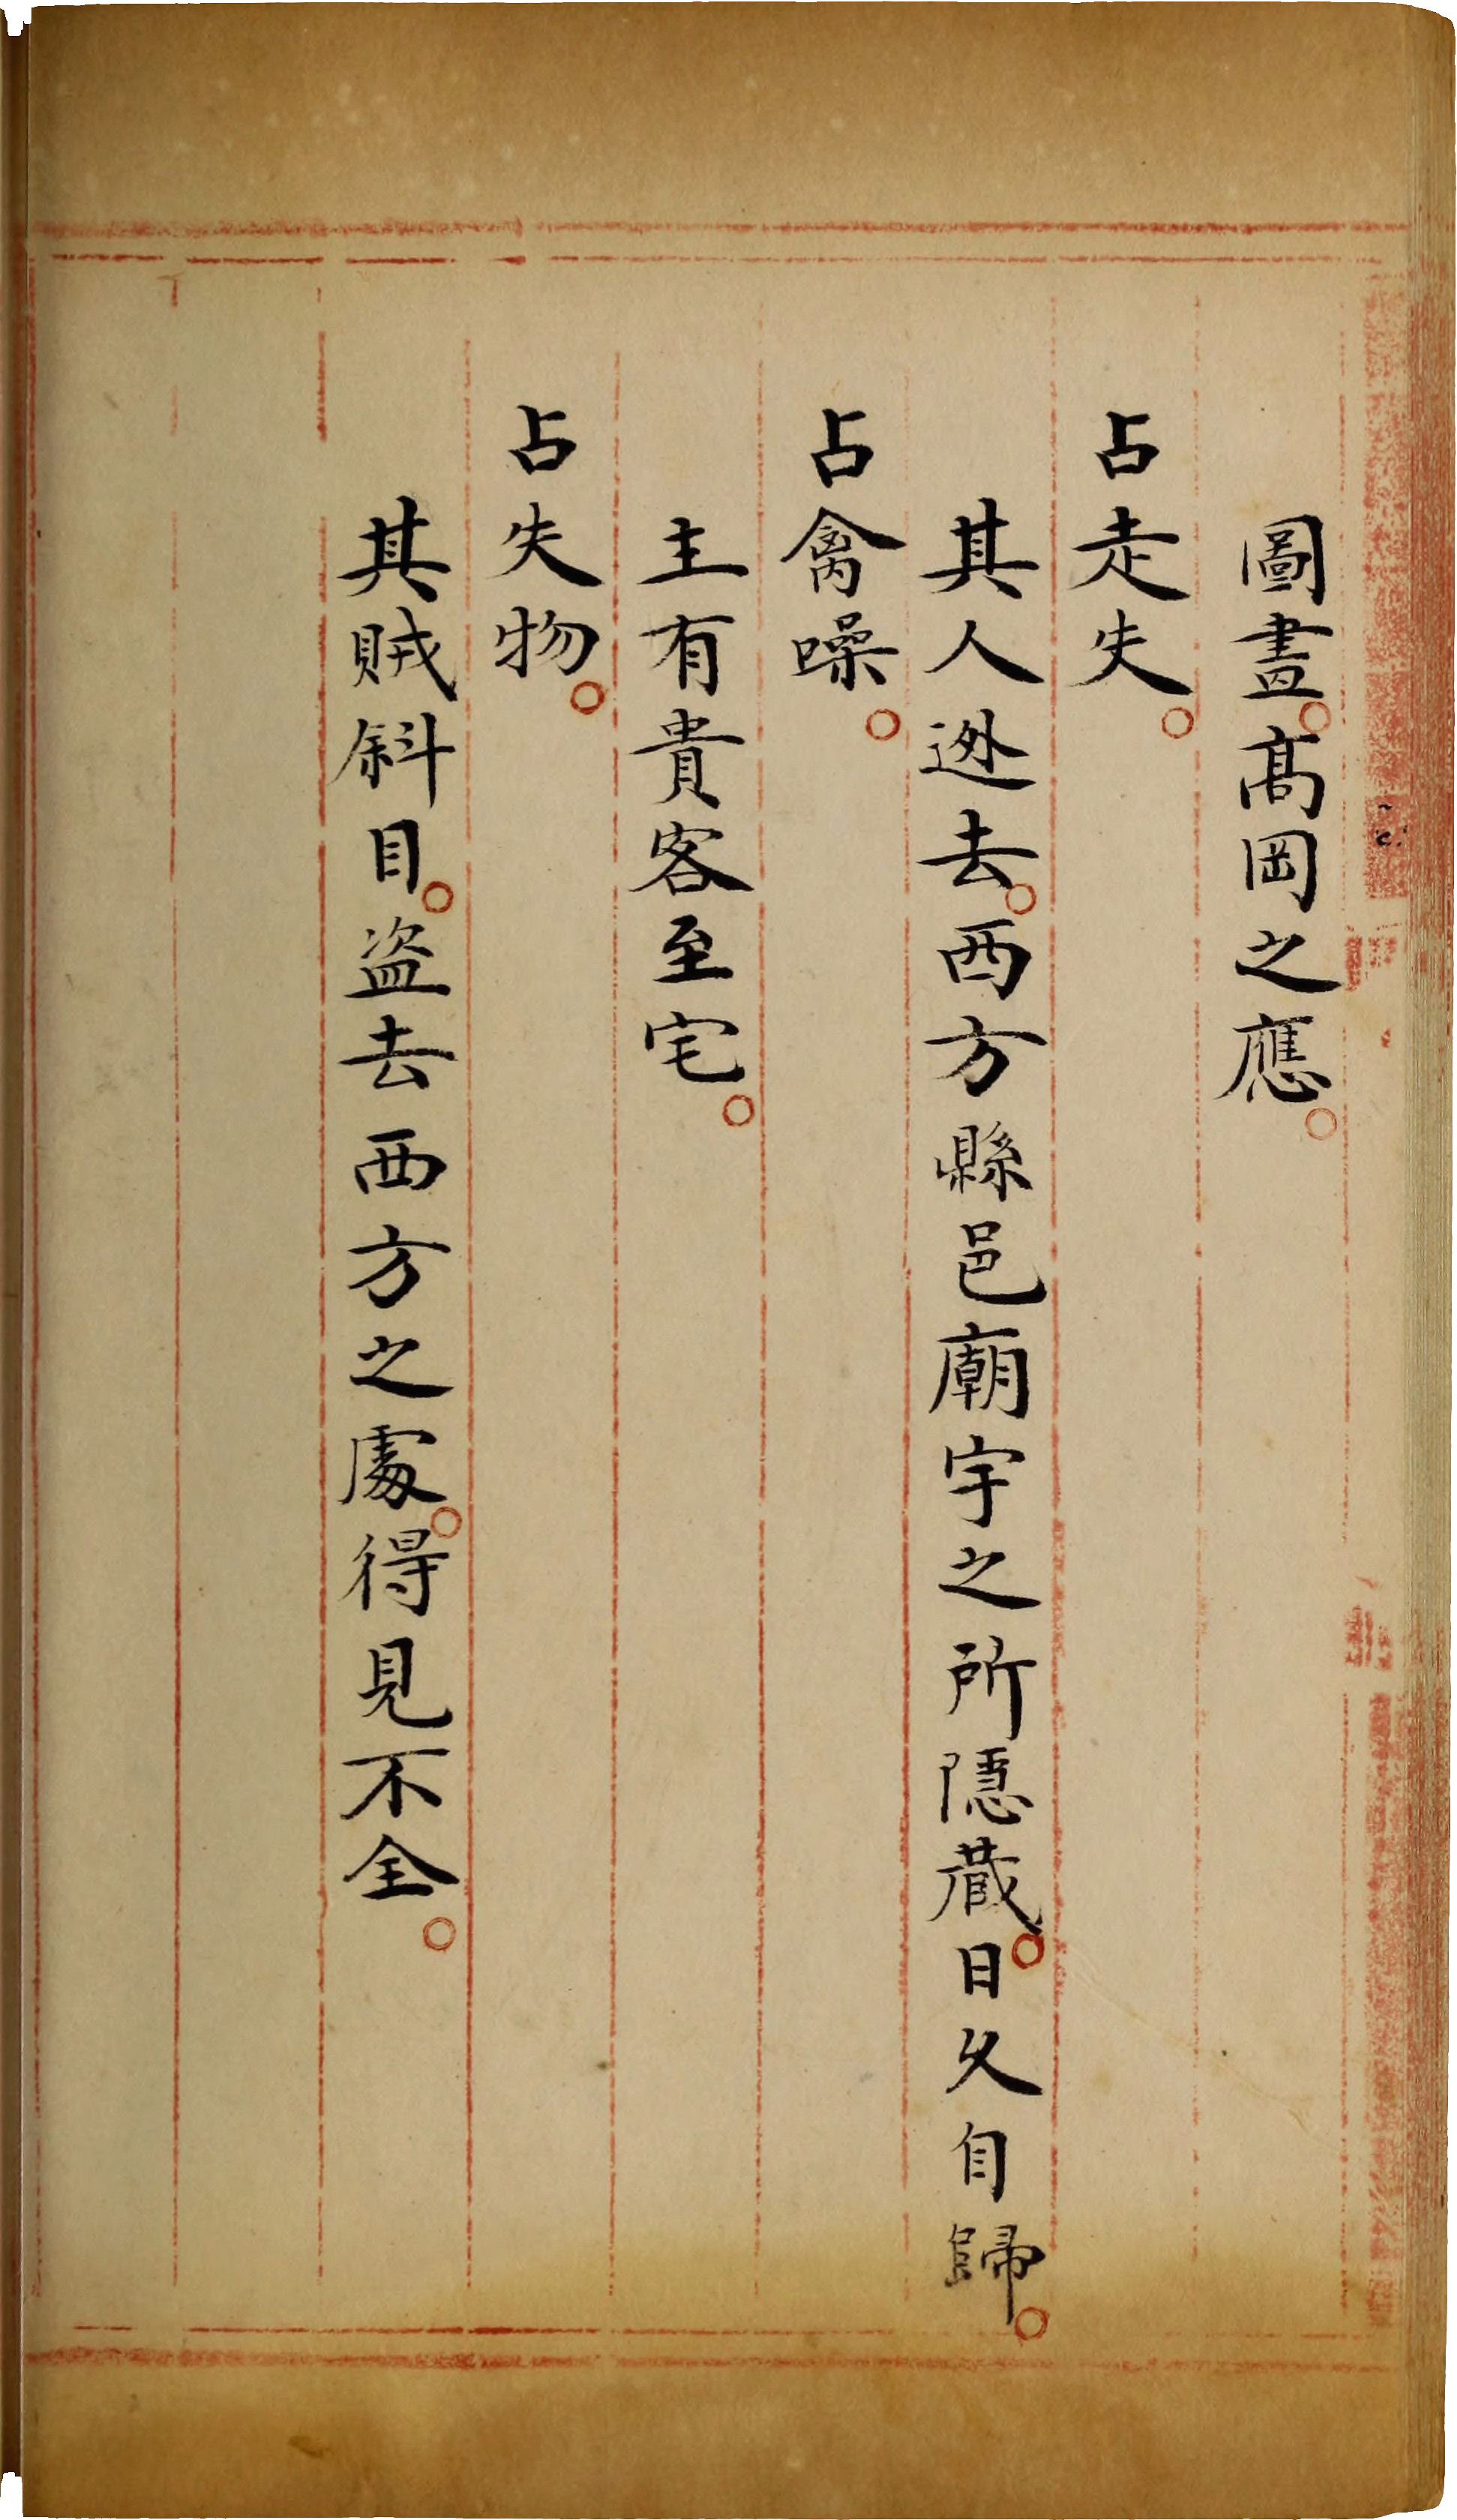 圖畫。高岡之應。
占走失。
其人逊去。西方縣邑廟宇之所隱藏。日久自歸。
占禽噪。
主有貴客至宅。
占失物。
其賊斜目。盗去西方之處。得見不全。